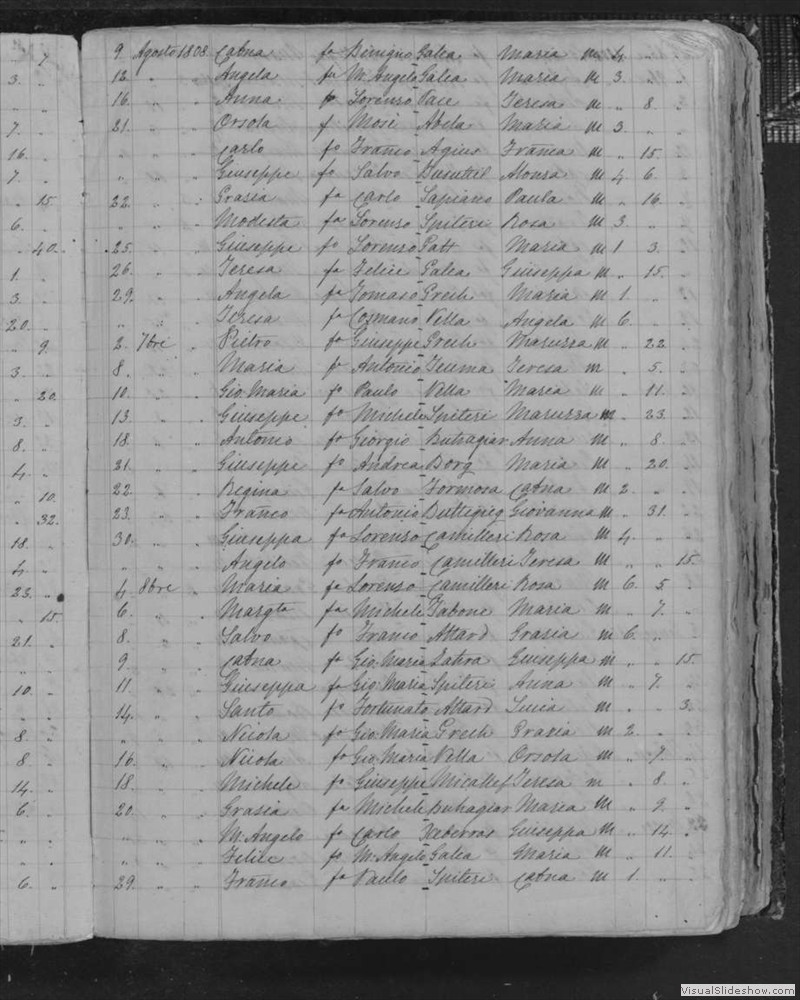 7. 9 Agosto 1808. Catna fa Benigno Galea Maria m 4 „ „
3. 12. „ „ Angela fa M. Angelo Galea Maria m 3. „ „
„ 16. „ „ Anna fa Lorenzo Pace Teresa m „ 8. „
7. „ 21. „ „ Orsola f Mosè Abela Maria m 3. „ „
16. „ „ „ „ Carlo fo Franco Agius Franca m „ 15. „
7. „ „ „ „ Giuseppe fo Salvo Busuttil Alonsa m 4 6. „
„ 15 22. „ „ Grasia fa Carlo Sapiano Paula m „ 16. „
6. „ „ „ „ Modesta fa Lorenzo Spiteri Rosa m 3 „ „
„ 40. 25. „ „ Giuseppe fo Lorenzo Patt Maria m 1 3. „
1. „ 26. „ „ Teresa fa Felice Galea Giuseppa m „ 15. „
3. „ 29. „ „ Angela fa Tomaso Grech Maria m 1. „ „
20. „ „ „ „ Teresa fa Cosmano Vella Angela m 6. „ „
„ 9. 2. 7bre „ Pietro fo Giuseppe Grech Maruzza m „ 22. „
3. „ 8. „ „ Maria fa Antonio Teuma Teresa m „ 5. „
„ 20. 10. „ „ Gio. Maria fo Paulo Vella Maria m „ 11. „
3. „ 13. „ „ Giuseppe fo Michele Spiteri Maruzza m „ 23. „
8. „ 18. „ „ Antonio fo Giorgio Buhagiar Anna m „ 8. „
4. „ 21. „ „ Giuseppe fo Andrea Borg Maria m „ 20. „
„ 10. 22. „ „ Regina fa Salvo Formosa Catna m 2. „ „
„ 32. 23. „ „ Franco fo Antonio Buttigieg Giovanna m „ 31. „
18. „ 30. „ „ Giuseppa fa Lorenzo Camilleri Rosa m 4. „ „
4. „ „ „ „ Angelo fo Franco Camilleri Teresa m „ „ 15.
23. „ 4 8bre „ Maria fa Lorenzo Camilleri Rosa m 6. 5. „
„ 15. 6. „ „ Margta fa Michele Tabone Maria m „ 7. „
21. „ 8. „ „ Salvo fo Franco Attard Grasia m 6. „ „
„ „ 9. „ „ Catna fa Gio. Maria Zahra Giuseppa m „ „ 15.
10. „ 11. „ „ Giuseppa fa Gio. Maria Spiteri Anna m „ 7. „
„ „ 14. „ „ Santo fo Fortunato Attard Lucia m „ „ 3.
8. „ „ „ „ Nicola fo Gio. Maria Grech Grasia m 2. „ „
8. „ 16. „ „ Nicola fo Gio. Maria Vella Orsola m „ 7. „
14. „ 18. „ „ Michele fo Giuseppe Micallef Teresa m „ 8. „
6. „ 20. „ „ Grasia fa Michele Buhagiar Maria m „ 9. „
„ „ „ „ „ M. Angelo fo Carlo Giuseppa m „ 14. „
„ „ „ „ „ Felice fo M. Angelo Galea Maria m „ 11. „
6. „ 29. „ „ Franco fo Paulo Spiteri Catna m 1 „ „
VisualSlideshow.com